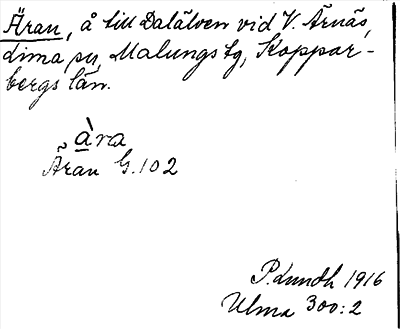 Äran, å till Dalälven vid V. Ärnäs,
Lima sn, Malungs tg, Koppar-
bergs län.
àra
Äran G.102
P. Lundh 1916
Ulma 300:2